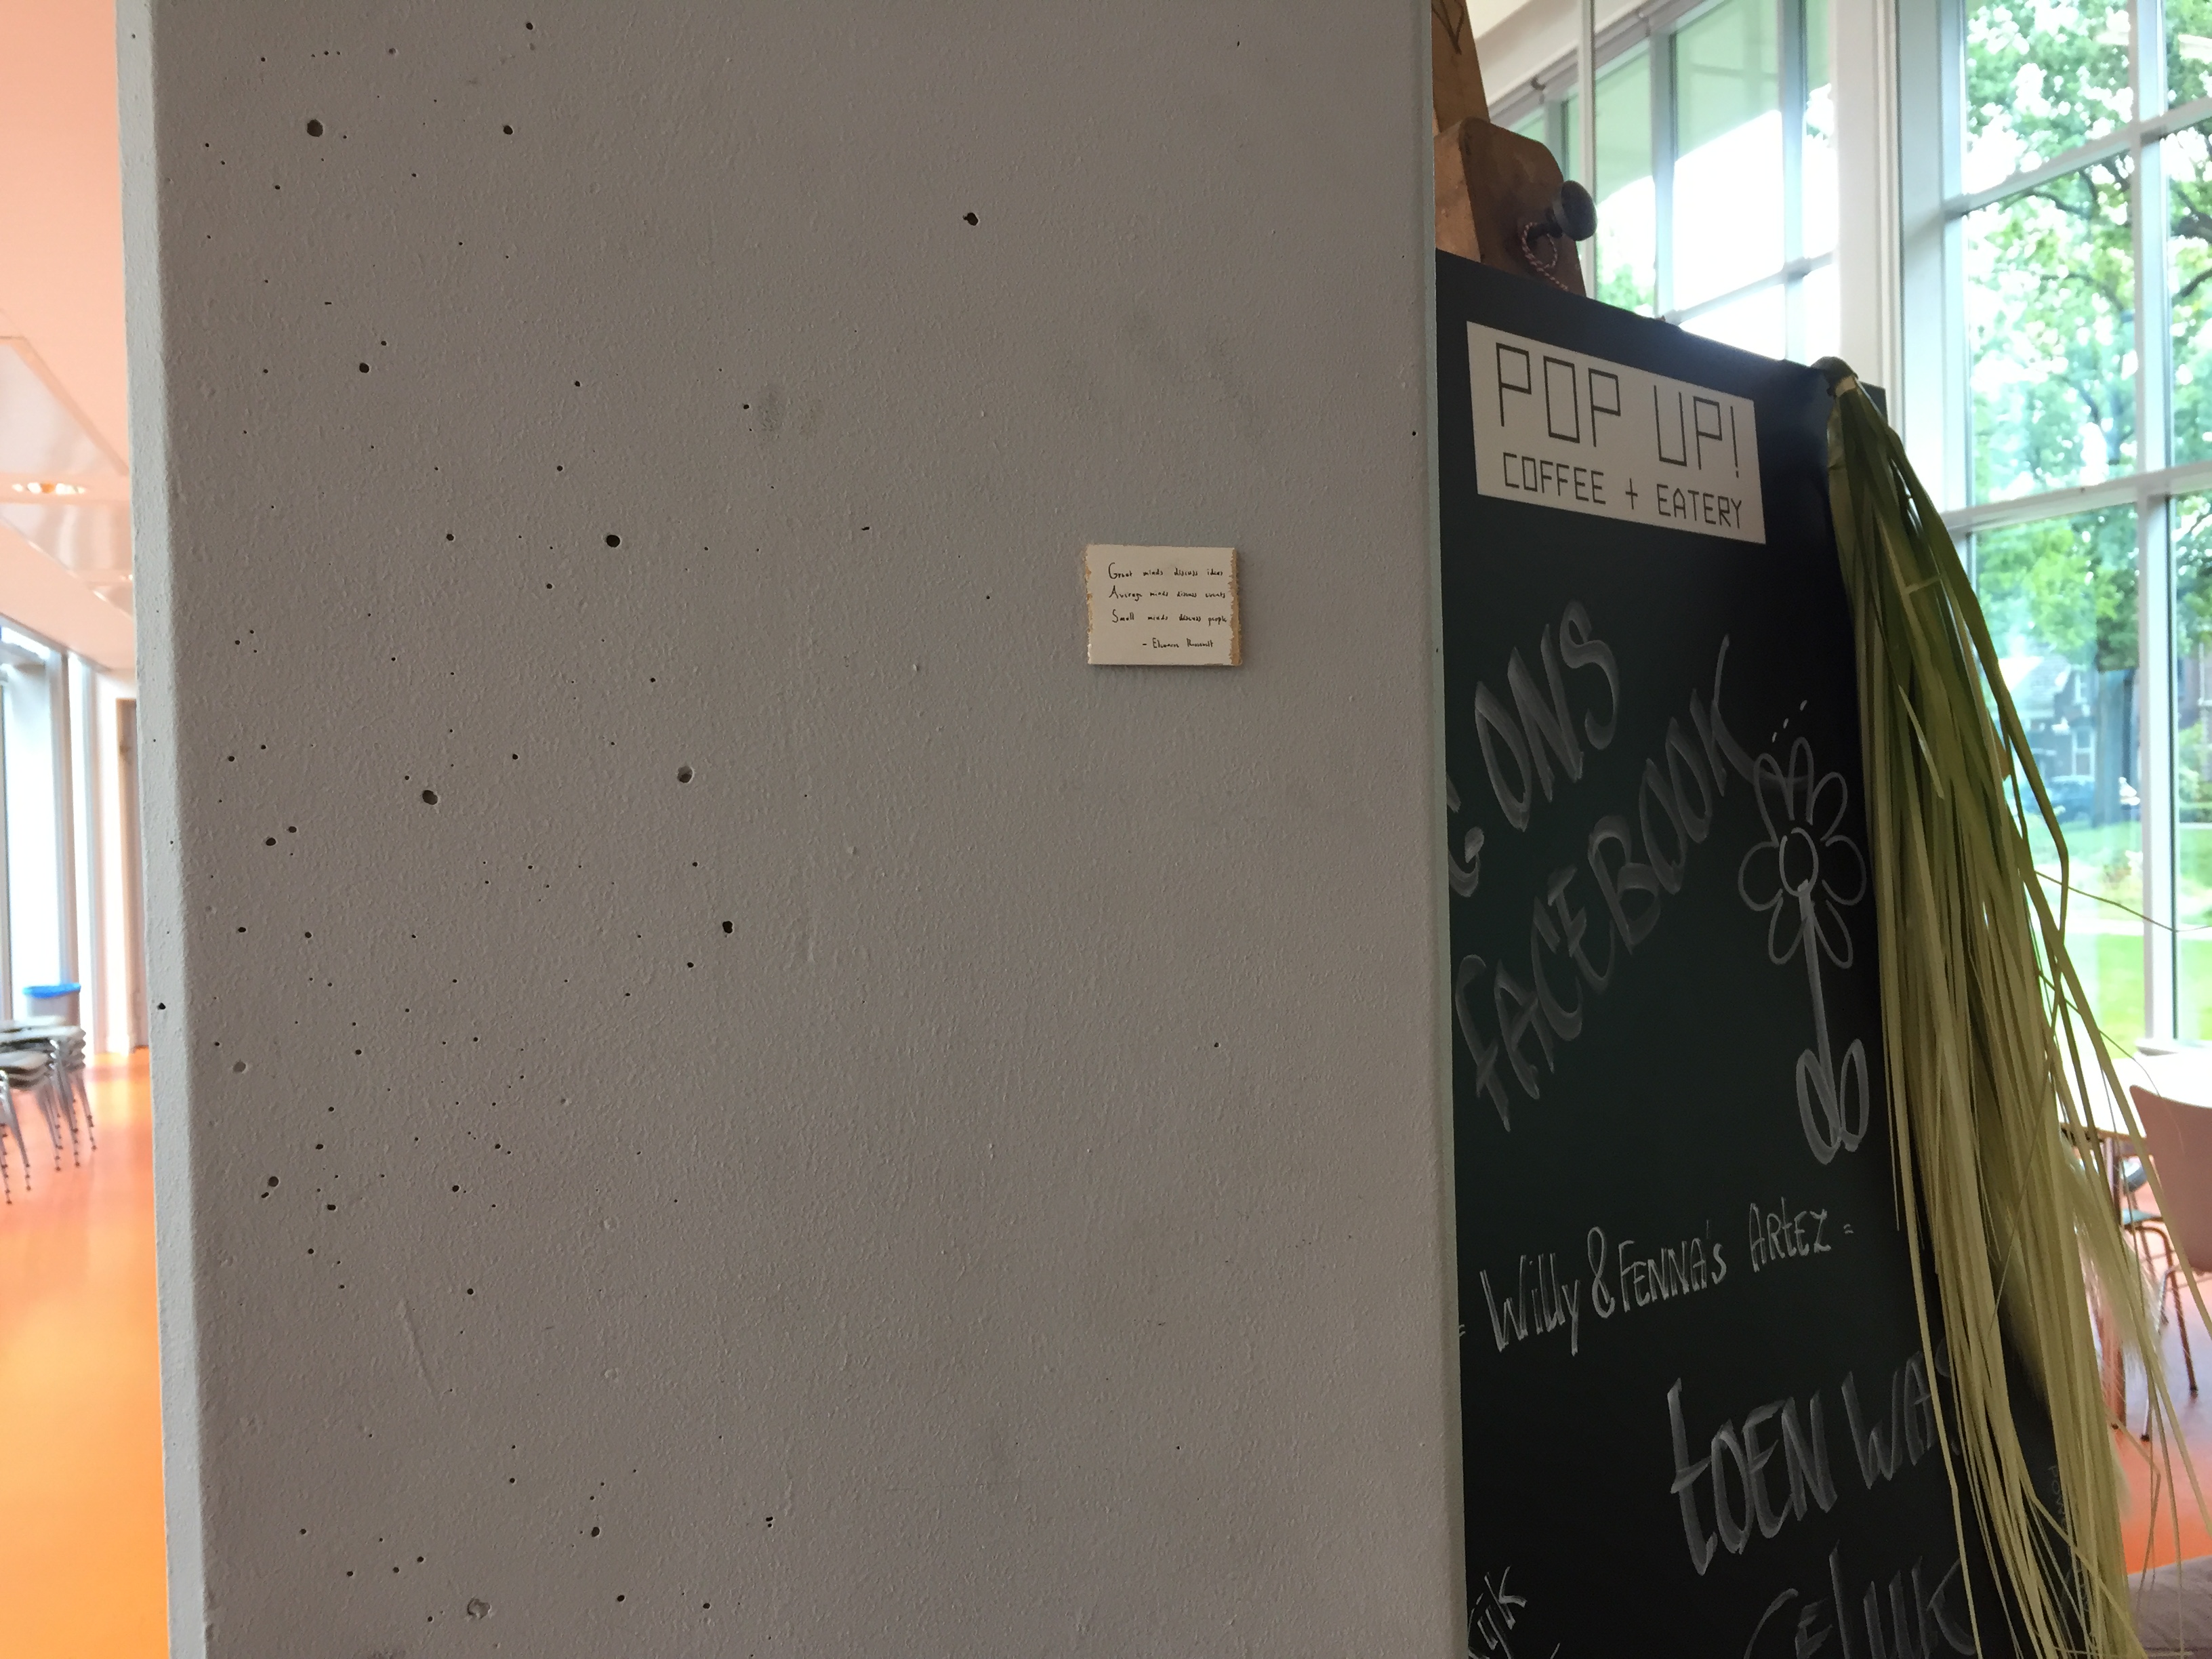 Great minds discuss ideas
Average minds discuss events
Small minds discuss people
- Eleanor Roosevelt
POP UP!
COFFEE + EATERY
G ONS
FACEBOOK
= Willy & FENNA's ARtEZ =
tOEN WAS
GELUK